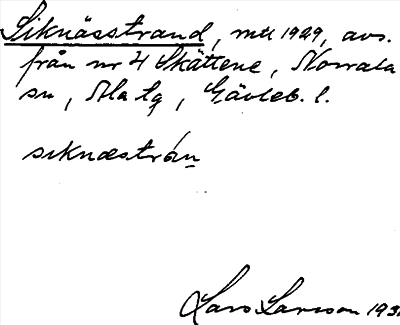 Siknässtrand, mtl 1929, avs.
från nr 4 Skättene, Norrala
sn, Ala tg, Gävleb. l.
siknæstrán
Lars Larsson 193